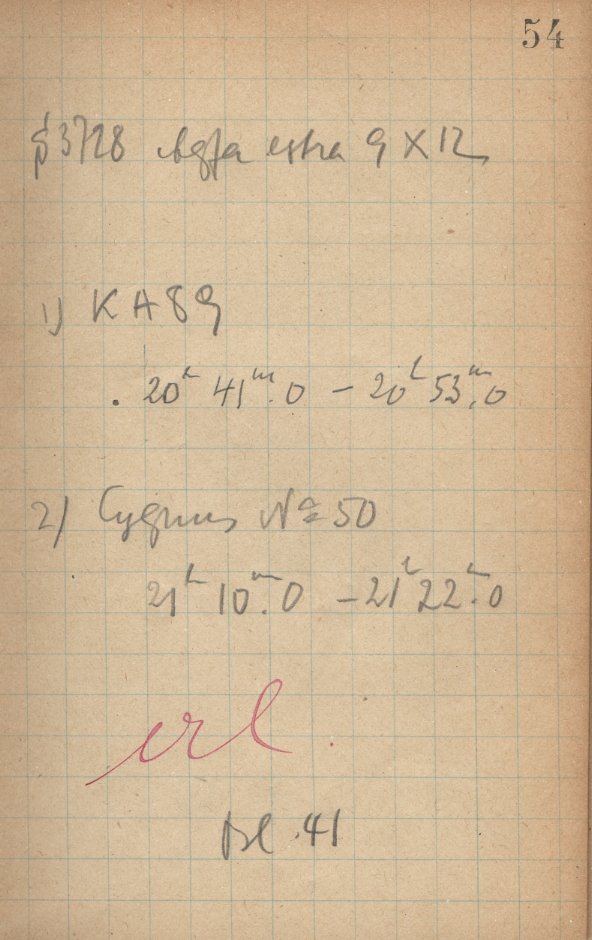 54
§3728 Agfa extra 9 X 12
1) KA 89
20h 41m.0 – 20h 53m.0
2) Cygnus № 50
21h 10m.0 – 21h 22m.0
erl.
Bl. 41